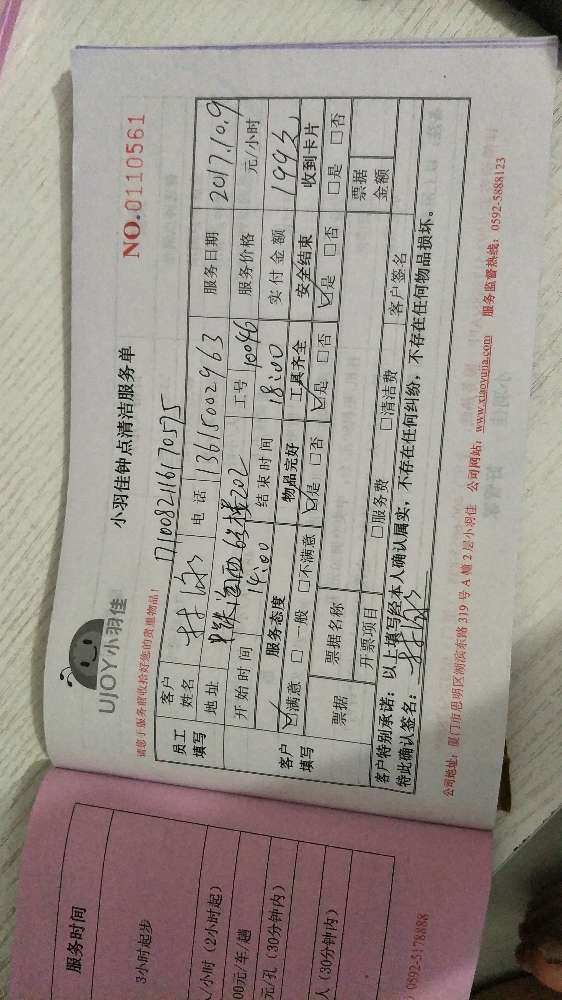 小羽佳钟点清洁服务单
NO.0110561
UJOY小羽佳
171008216170575
请您于服务前收拾好您的贵重物品!
员工填写 客户姓名 电话 13615002963 服务日期 2017.10.9
地址 工号 10046 服务价格 元/小时
开始时间 14:00 结束时间 18:00 实付金额 199
客户填写 服务态度 物品完好 工具齐全 安全结束 收到卡片
☑满意 □一般 □不满意 ☑是 □否 ☑是 □否 ☑是 □否 □是 □否
票据 票据名称 票据金额
开票项目 □服务费 □清洁费 客户签名
客户特别承诺:以上填写经本人确认属实,不存在任何纠纷,不存在任何物品损坏。
特此确认签名:
公司地址:厦门市思明区湖滨东路319号A幢2层小羽佳 公司网站:www.xiaoyujia.com 服务监督热线:0592-5888123
服务时间
3小时起步
/小时(2小时起)
00元/车/趟
元/孔(30分钟内)
人(30分钟内)
0592-5178888